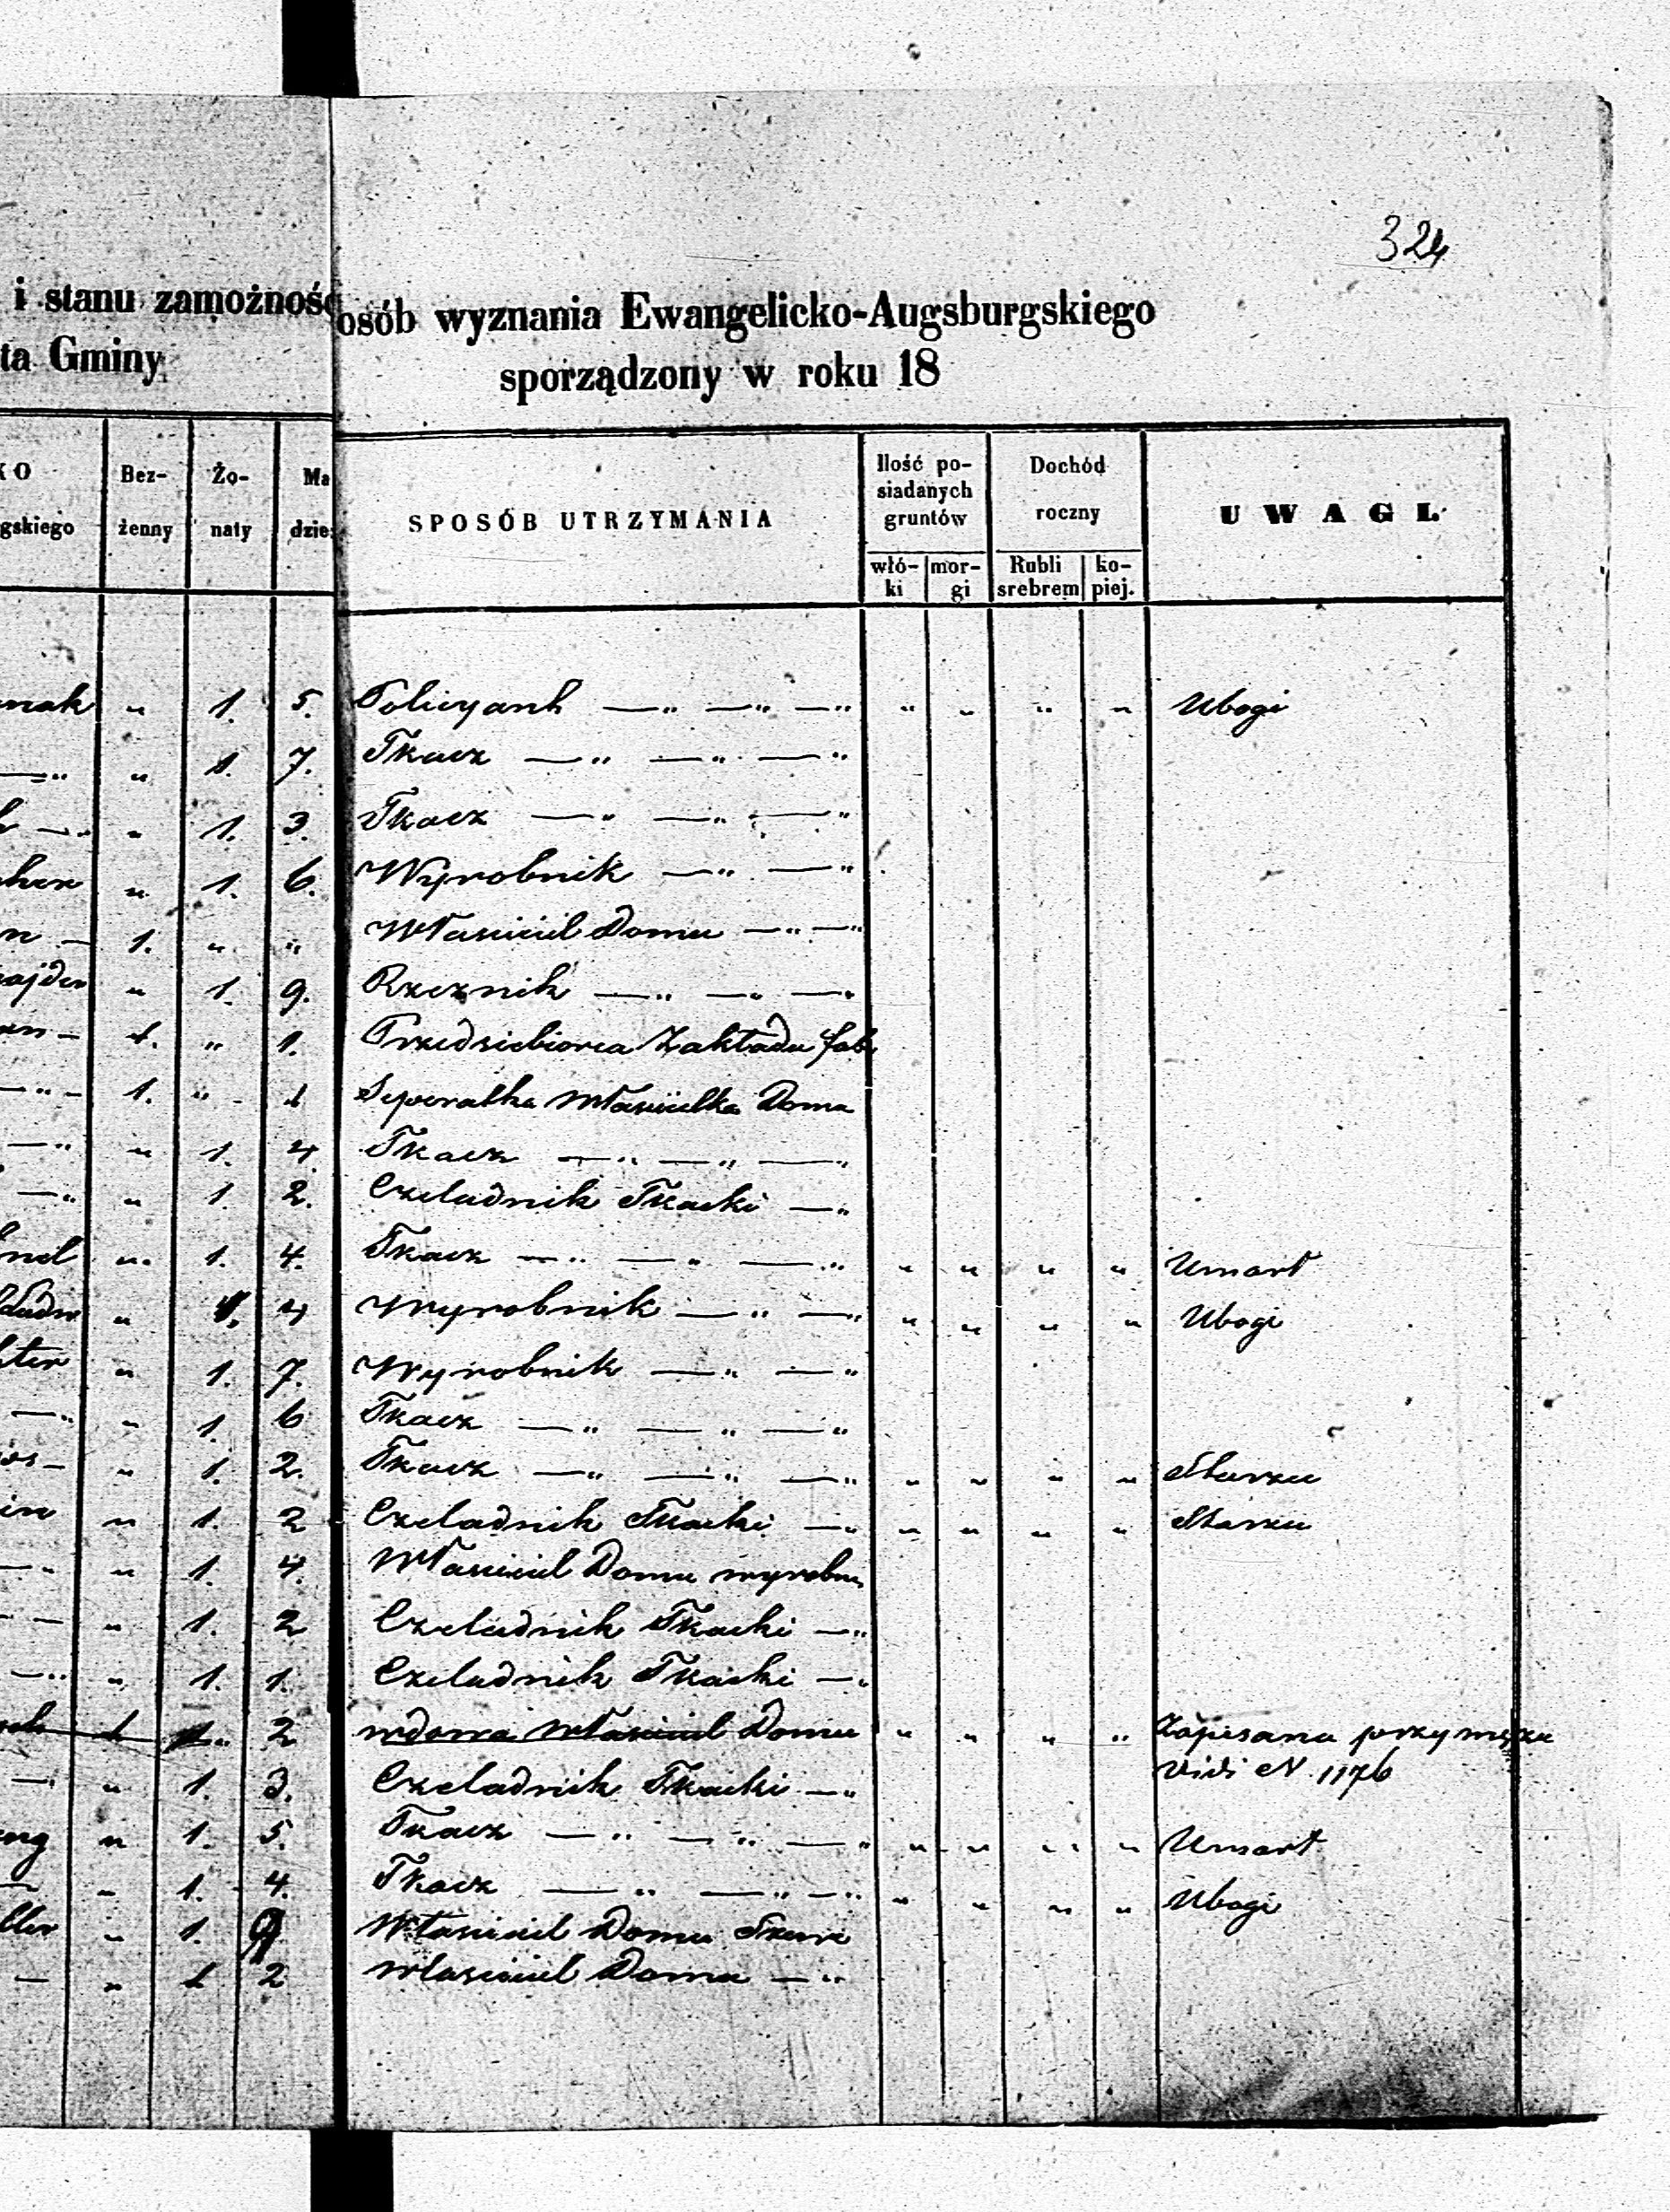 324
i stanu zamożnoś osób wyznania Ewangelicko-Augsburgskiego
ta Gminy sporządzony w roku 18
KO Bez- Żo- Ma
gskiego żenny naty dzie
SPOSÓB UTRZYMANIA
Ilość po- siadanych gruntów
włó- ki mor- gi
Dochód roczny
Rubli srebrem ko- piej.
UWAGI.
nak " 1. 5. Policyant —" —" —" " " " " Ubogi
—" " 1. 7. Tkacz —" —" —"
—" " 1. 3. Tkacz —" —" —"
cher " 1. 6. Wyrobnik —" —"
n — 1. " " Właściciel Domu —" —"
ajder " 1. 9. Rzeznik —" —" —"
en — 1. " 1. Przedsiebiorca Zakładu fab
—" — 1. " 1 Seperatka właścicielka Domu
—" " 1. 4. Tkacz —" —" —"
—" " 1. 2. Czeladnik Tkacki —"
nel " 1. 4. Tkacz —" —" —" " " " " Umarł
" 1. 4 Wyrobnik —" —" " " " " Ubogi
hter " 1. 7. Wyrobnik —" —"
—" " 1. 6 Tkacz —" —" —"
" 1. 2. Tkacz —" —" —" " " " "
in " 1. 2 Czeladnik Tkacki —" " " " "
—" " 1. 4. Właściciel Domu wyrobn
— " 1. 2 Czeladnik Tkacki —"
—" " 1. 1. Czeladnik Tkacki —"
2 wdowa właściciel Domu " " " " Zapisana przy mężu
vidi N. 1176
— " 1. 3. Czeladnik Tkacki —"
ng " 1. 5. Tkacz —" —" —" " " " " Umarł
— " 1. 4. Tkacz —" —" —" " " " " Ubogi
ller " 1. 9 Właściciel Domu Tkacz
— " 1 2 właściciel Domu —"